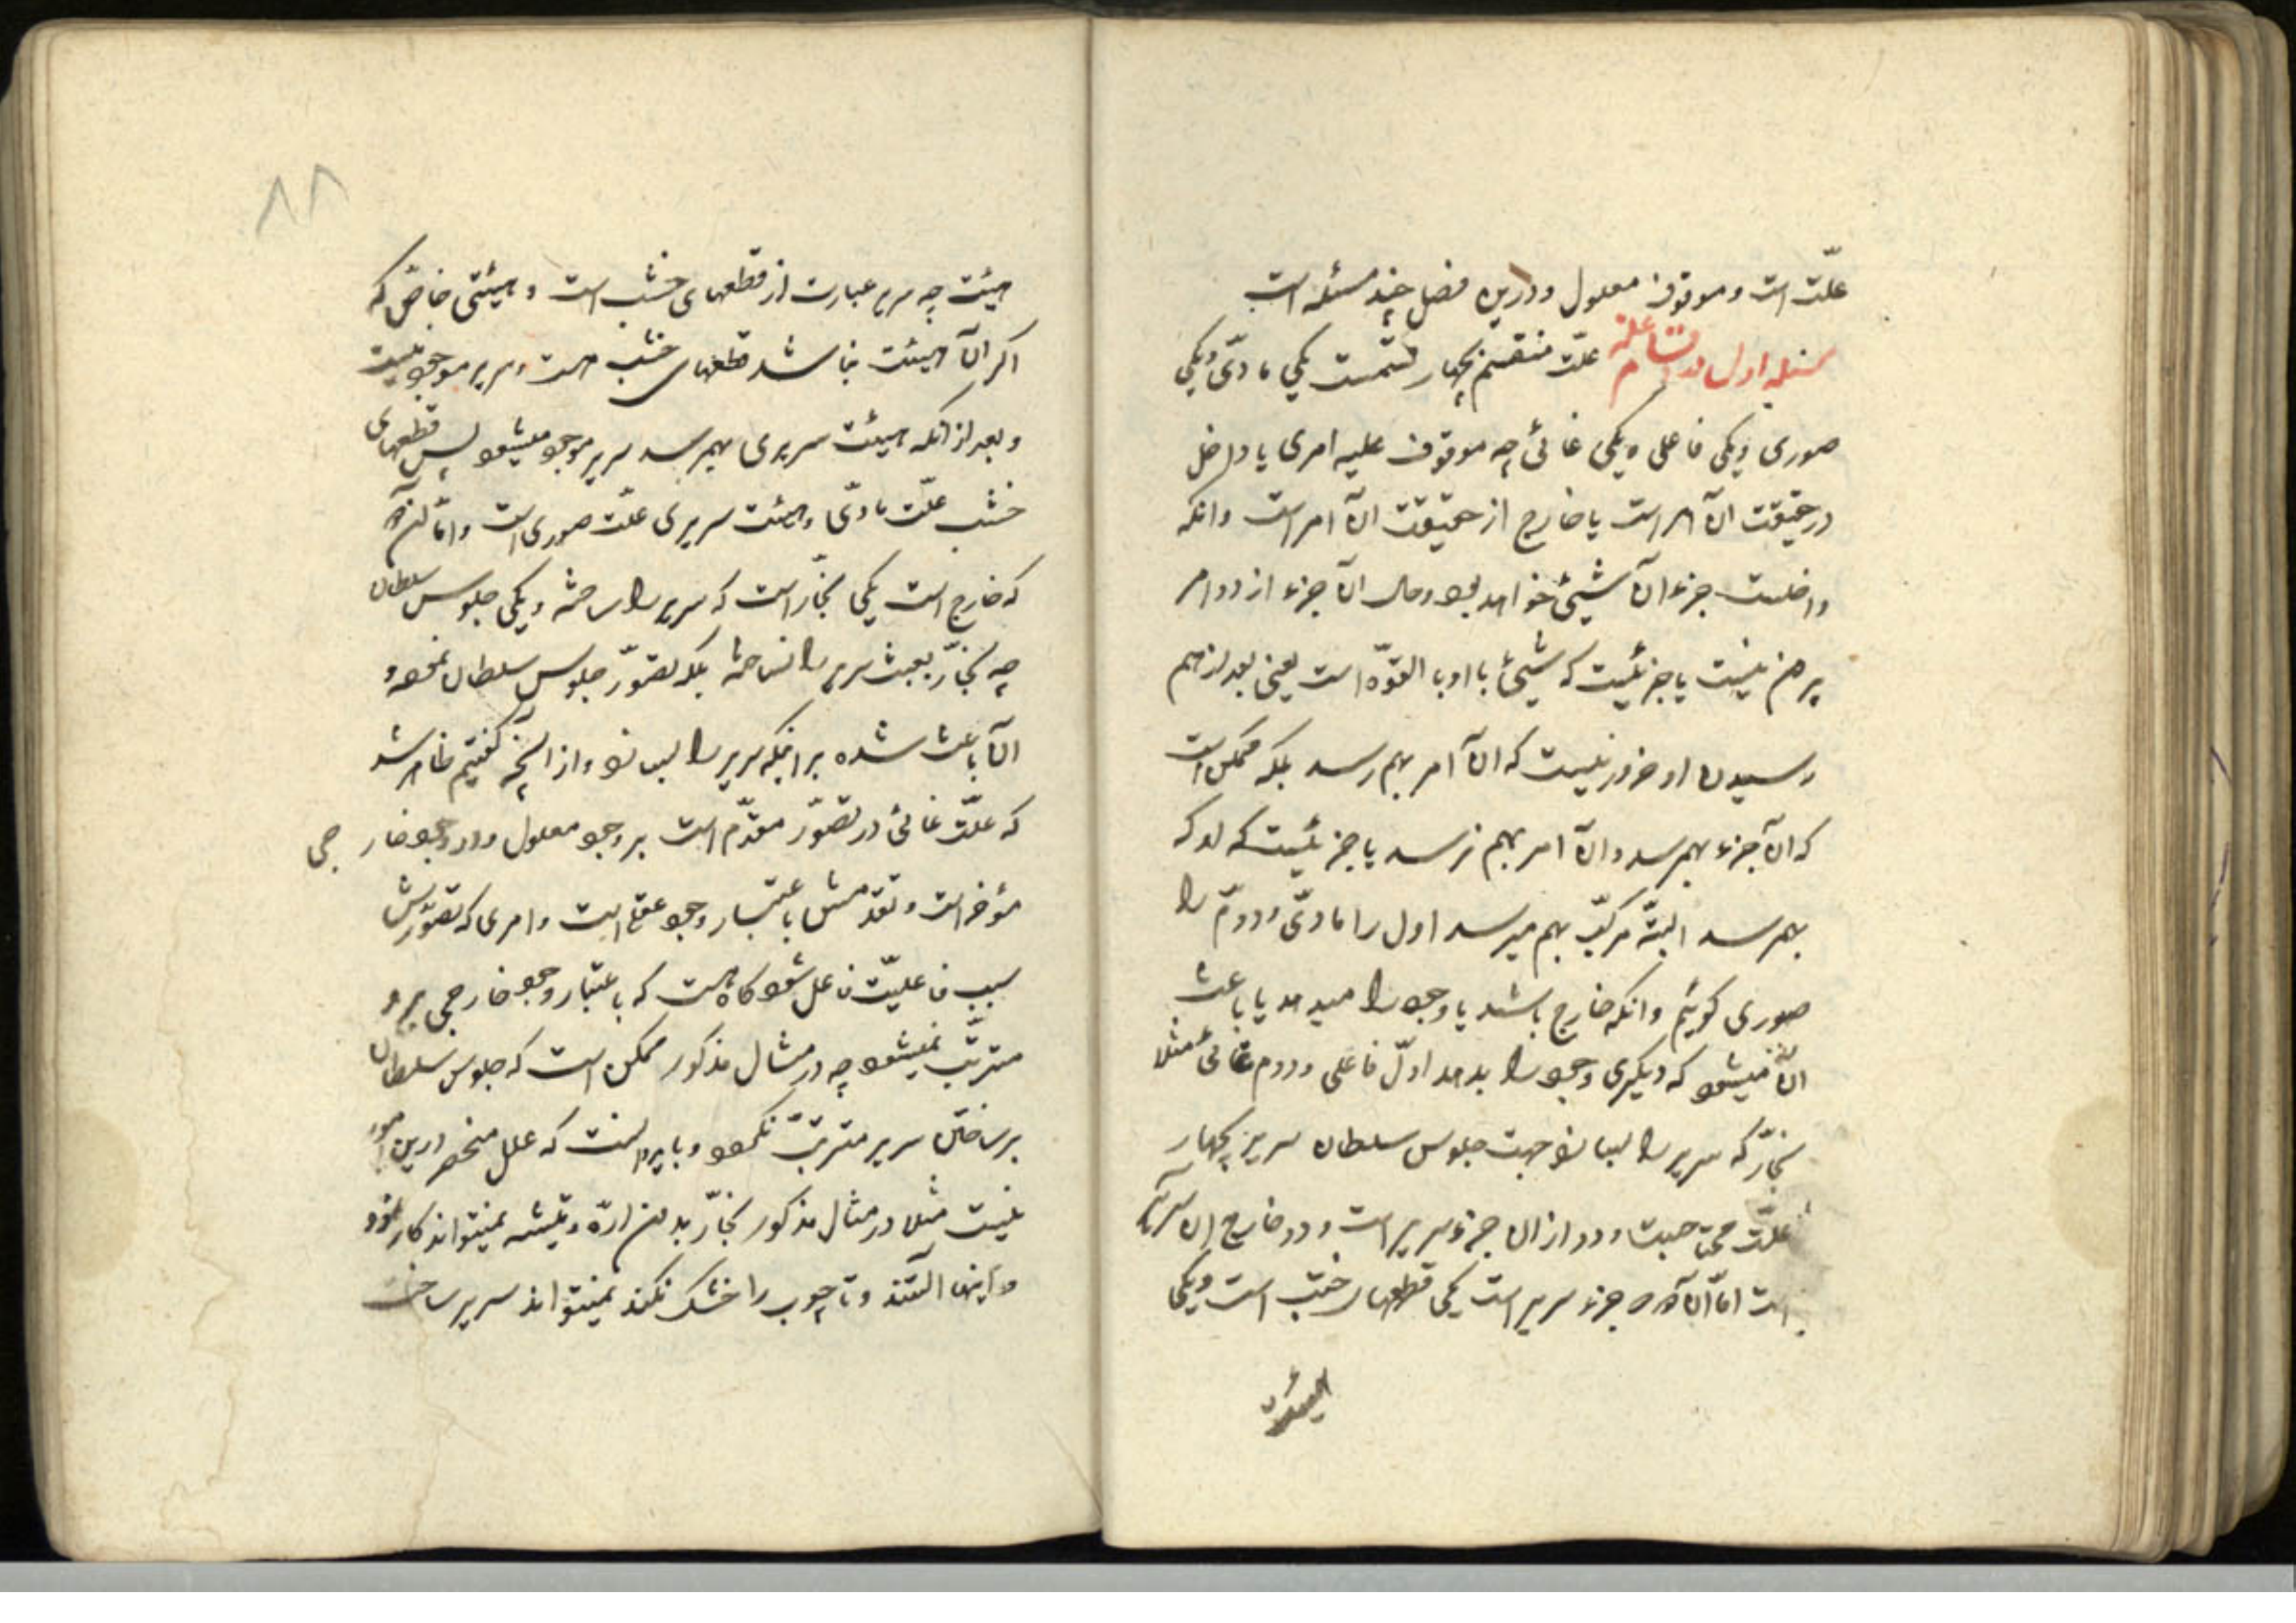 علّت است و موقوف معلول و درین فصل چند مسئله است
مسئله اول در اقسام علة علّت منقسم بچهار قسمست یکی مادّی و یکی
صوری و یکی فاعلی و یکی غائی چه موقوف علیه امری یا داخل
در حقیقت آن امر است یا خارج از حقیقت آن امر است و انکه
داخلست جزء آن شیئ خواهد بود و حال آن جزء از دو امر
بیرون نیست یا جزئیست که شیئ با او بالقوّه است یعنی بعد از بهم
رسیدن او ضرور نیست که آن امر بهم رسد بلکه ممکن است
که آن جزء بهم رسد و آن امر بهم نرسد یا جزئیست که او که
بهم رسد البتّه مرکّب بهم میرسد اول را مادّی و دوم را
صوری گوئیم و انکه خارج باشد یا وجود را میدهد یا باعث
آن میشود که دیگری وجود را بدهد اوّل فاعلی و دوم غائی مثلا
نجّار که سریر را بسازد جهت جلوس سلطان سریر بچهار
علّت محتاجست و دو از آن جزء سریر است و دو خارج از سریر
است امّا آن دو که جزء سریر است یکی قطعهای خشب است و یکی
هیئت
٨٨
هیئت چه سریر عبارت از قطعهای خشب است و هیئتی خاصّ که
اکر آن هیئت نباشد قطعهای خشب هست و سریر موجود نیست
و بعد از انکه هیئت سریری بهمرسد سریر موجود میشود پس قطعهای
خشب علّت مادّی و هیئت سریری علّت صوری است و امّا آن دو
که خارج است یکی نجّار است که سریر را ساخته و یکی جلوس سلطان
چه نجّار بعبث سریر را نساخته بلکه تصوّر جلوس سلطان نموده و
آن باعث شده بر اینکه سریر را بسازد و از انچه کفتیم ظاهر شد
که علّت غائی در تصوّر مقدّم است بر وجود معلول و در وجود خارجی
مؤخر است و تقدمش باعتبار وجود عقلی است و امری که تصوّرش
سبب فاعلیّت فاعل شود کاه هست که باعتبار وجود خارجی برو
مترتّب نمیشود چه در مثال مذکور ممکن است که جلوس سلطان
بر ساختن سریر مترتّب نکردد و باید دانست که علل منحصر درین امور
نیست مثلا در مثال مذکور نجّار بدون ارّه و تیشه نمیتواند کار کرد
و اینها آلتند و تا چوب را خشک نکند نمیتواند سریر ساخت